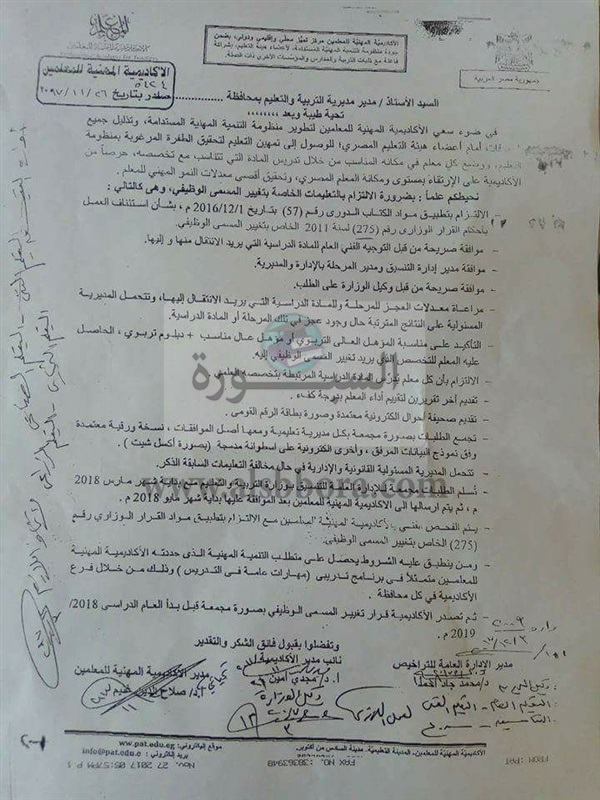 الأكاديمية المهنية للمعلمين مركز تميز محلي وإقليمي ودولي، يضمن
جودة منظومة التنمية المهنية المستدامة، لأعضاء هيئة التعليم، بشراكة
فاعلة مع كليات التربية والمدارس والمؤسسات الأخرى ذات الصلة.
جمهورية مصر العربية
الأكاديمية المهنية للمعلمين
صادر بتاريخ
السيد الأستاذ/ مدير مديرية التربية والتعليم بمحافظة
تحية طيبة وبعد ........
في ضوء سعي الأكاديمية المهنية للمعلمين لتطوير منظومة التنمية المهنية المستدامة، وتذليل جميع
أمام أعضاء هيئة التعليم المصري؛ للوصول إلى تمهين التعليم لتحقيق الطفرة المرغوبة بمنظومة
التعليم، ووضع كل معلم في مكانه المناسب من خلال تدريس المادة التي تتناسب مع تخصصه، حرصاً من
الأكاديمية على الإرتقاء بمستوى ومكانة المعلم المصري، وتحقيق أقصى معدلات النمو المهني للمعلم.
نحيطكم علماً: بضرورة الالتزام بالتعليمات الخاصة بتغيير المسمى الوظيفي، وهى كالتالي:
– الالتزام بتطبيق مواد الكتاب الدورى رقم (57) بتاريخ 2016/12/1م، بشأن استئناف العمل
بأحكام القرار الوزارى رقم (275) لسنة 2011 الخاص بتغيير المسمى الوظيفي.
– موافقة صريحة من قبل التوجيه الفني العام للمادة الدراسية التي يريد الانتقال منها و إليها.
– موافقة مدير إدارة التنسيق ومدير المرحلة بالإدارة والمديرية.
– موافقة صريحة من قبل وكيل الوزارة على الطلب.
– مراعاة معدلات العجز للمرحلة وللمادة الدراسية التي يريد الانتقال إليها، وتتحمل المديرية
المسئولية على النتائج المترتبة حال وجود عجز في تلك المرحلة أو المادة الدراسية.
– التأكيد على مناسبة المؤهل العالى التربوي أو مؤهل عال مناسب + دبلوم تربوي، الحاصل
عليه المعلم للتخصص الذي يريد تغيير المسمى الوظيفي إليه.
– الالتزام بأن كل معلم يدرس المادة الدراسية المرتبطة بتخصصه العلمي.
– تقديم أخر تقريرين لتقييم أداء المعلم بدرجة كفء.
– تقديم صحيفة أحوال الكترونية معتمدة وصورة بطاقة الرقم القومي.
– تجمع الطلبات بصورة مجمعة بكل مديرية تعليمية ومعها أصل الموافقات، نسخة ورقية معتمدة
وفق نموذج البيانات المرفق، وأخرى الكترونية على اسطوانة مدمجة (بصورة أكسل شيت).
– تتحمل المديرية المسئولية القانونية والإدارية في حال مخالفة التعليمات السابقة الذكر.
– تُسلم الطلبات مجمعة للإدارة العامة للتنسيق بوزارة التربية والتعليم مع بداية شهر مارس 2018
م، ثم يتم ارسالها الى الأكاديمية المهنية للمعلمين بعد الموافقة عليها بداية شهر مايو 2018 م.
– يتم الفحص الفني بالأكاديمية المهنية للمعلمين مع الالتزام بتطبيق مواد القرار الوزاري رقم
(275) الخاص بتغيير المسمى الوظيفي.
– ومن ينطبق عليه الشروط يحصل على متطلب التنمية المهنية الذى حددته الأكاديمية المهنية
للمعلمين متمثلاً في برنامج تدريبى (مهارات عامة فى التدريس) وذلك من خلال فرع
الأكاديمية في كل محافظة.
– ثم تصدر الأكاديمية قرار تغيير المسمى الوظيفي بصورة مجمعة قبل بدأ العام الدراسى 2018/
2019 م.
وتفضلوا بقبول فائق الشكر والتقدير
مدير الادارة العامة للتراخيص
نائب مدير الأكاديمية
مدير الأكاديمية المهنية للمعلمين
أ.د/ مجدي أمين
السبورة
www.alsbbora.com
الأكاديمية المهنية للمعلمين، المدينة التعليمية، مدينة السادس من أكتوبر.
موقع إليكتروني: www.pat.edu.eg
بريد إليكتروني: info@pat.edu.e
FROM :PAT
FAX NO. :38363948
Nov. 27 2017 05:57PM P 1